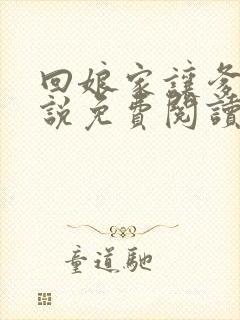 回娘家讓爹
說免費閱讀
童道馳